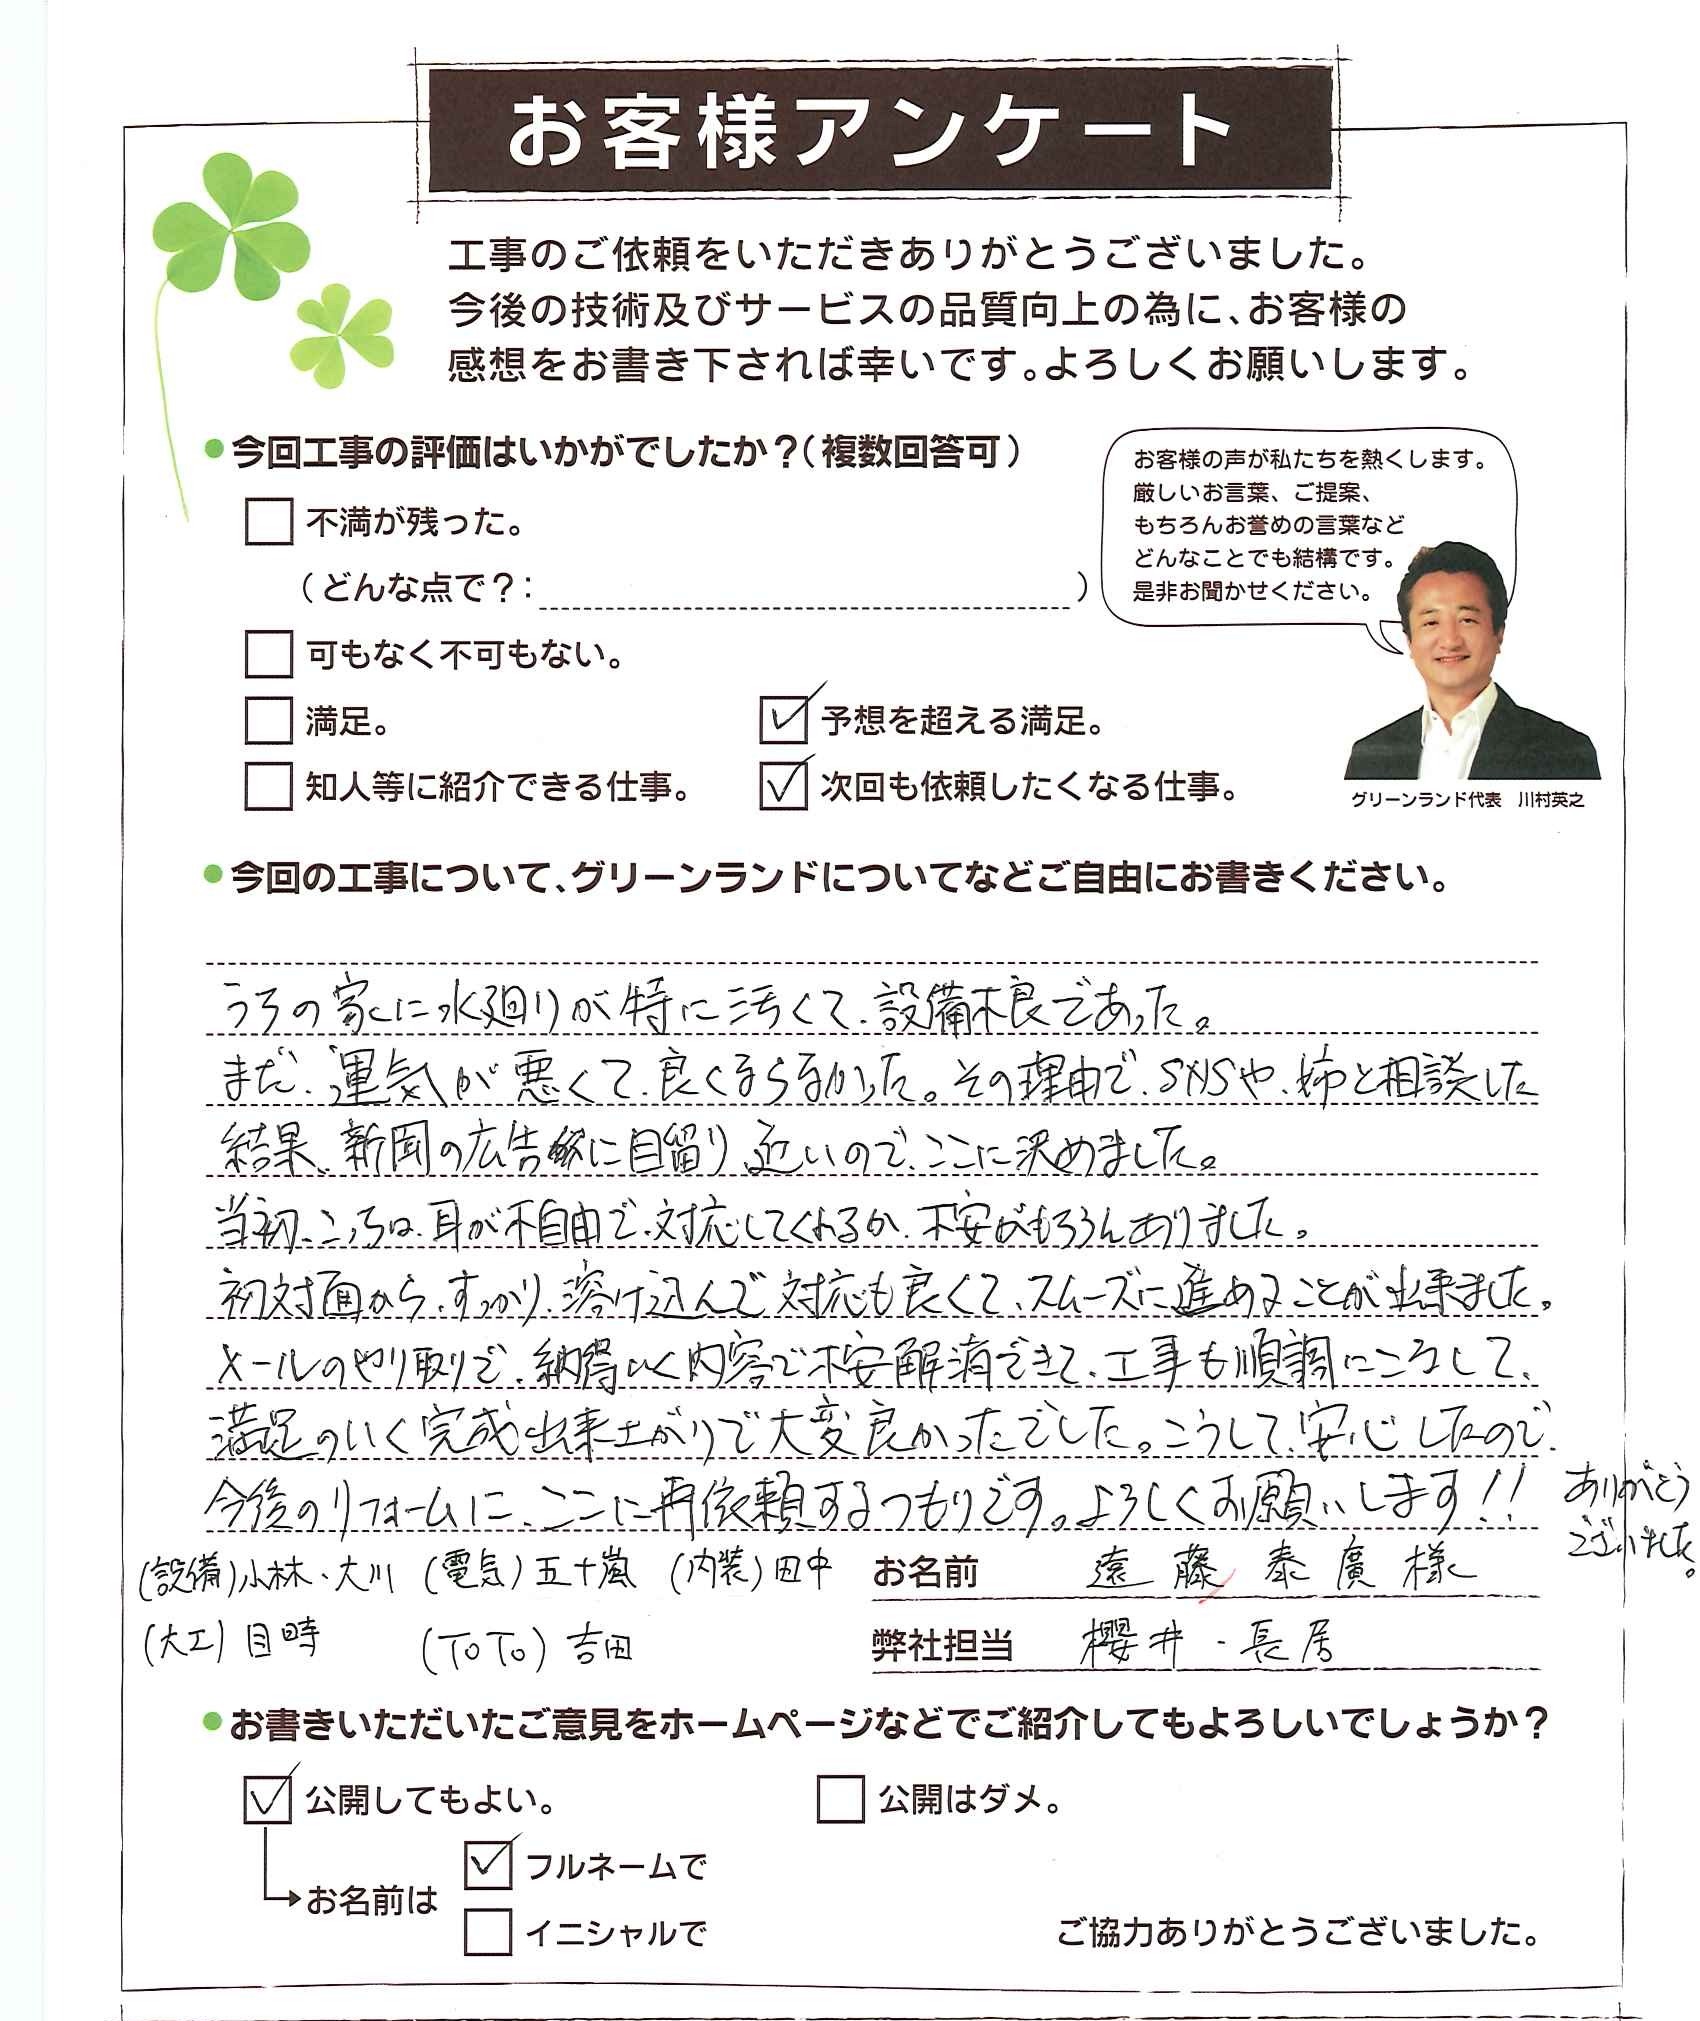 お客様アンケート
工事のご依頼をいただきありがとうございました。
今後の技術及びサービスの品質向上の為に、お客様の
感想をお書き下されば幸いです。よろしくお願いします。
●今回工事の評価はいかがでしたか?(複数回答可)
不満が残った。
(どんな点で?: )
可もなく不可もない。
満足。
☑予想を超える満足。
知人等に紹介できる仕事。
☑次回も依頼したくなる仕事。
お客様の声が私たちを熱くします。
厳しいお言葉、ご提案、
もちろんお誉めの言葉など
どんなことでも結構です。
是非お聞かせください。
グリーンランド代表 川村英之
●今回の工事について、グリーンランドについてなどご自由にお書きください。
うちの家に水廻りが特に汚くて、設備不良であった。
まだ、運気が悪くて、良くならなかった。その理由で、SNSや、姉と相談した
結果、新聞の広告に目留り、近いので、ここに決めました。
当初、こっちは、耳が不自由で、対応してくれるか、不安がもちろんありました。
初対面から、すっかり、溶け込んで対応も良くて、スムーズに進めることが出来ました。
メールのやり取りで、納得いく内容で不安解消できて、工事も順調にこなして、
満足のいく完成出来上がりで大変良かったでした。こうして、安心したので、
今後のリフォームに、ここに再依頼するつもりです。よろしくお願いします!!
ありがとう
ございました。
(設備)小林・大川 (電気)五十嵐 (内装)田中
(大工)目時 (TOTO)吉田
お名前 遠藤泰廣様
弊社担当 櫻井・長居
●お書きいただいたご意見をホームページなどでご紹介してもよろしいでしょうか?
☑公開してもよい。
公開はダメ。
お名前は
☑フルネームで
イニシャルで
ご協力ありがとうございました。